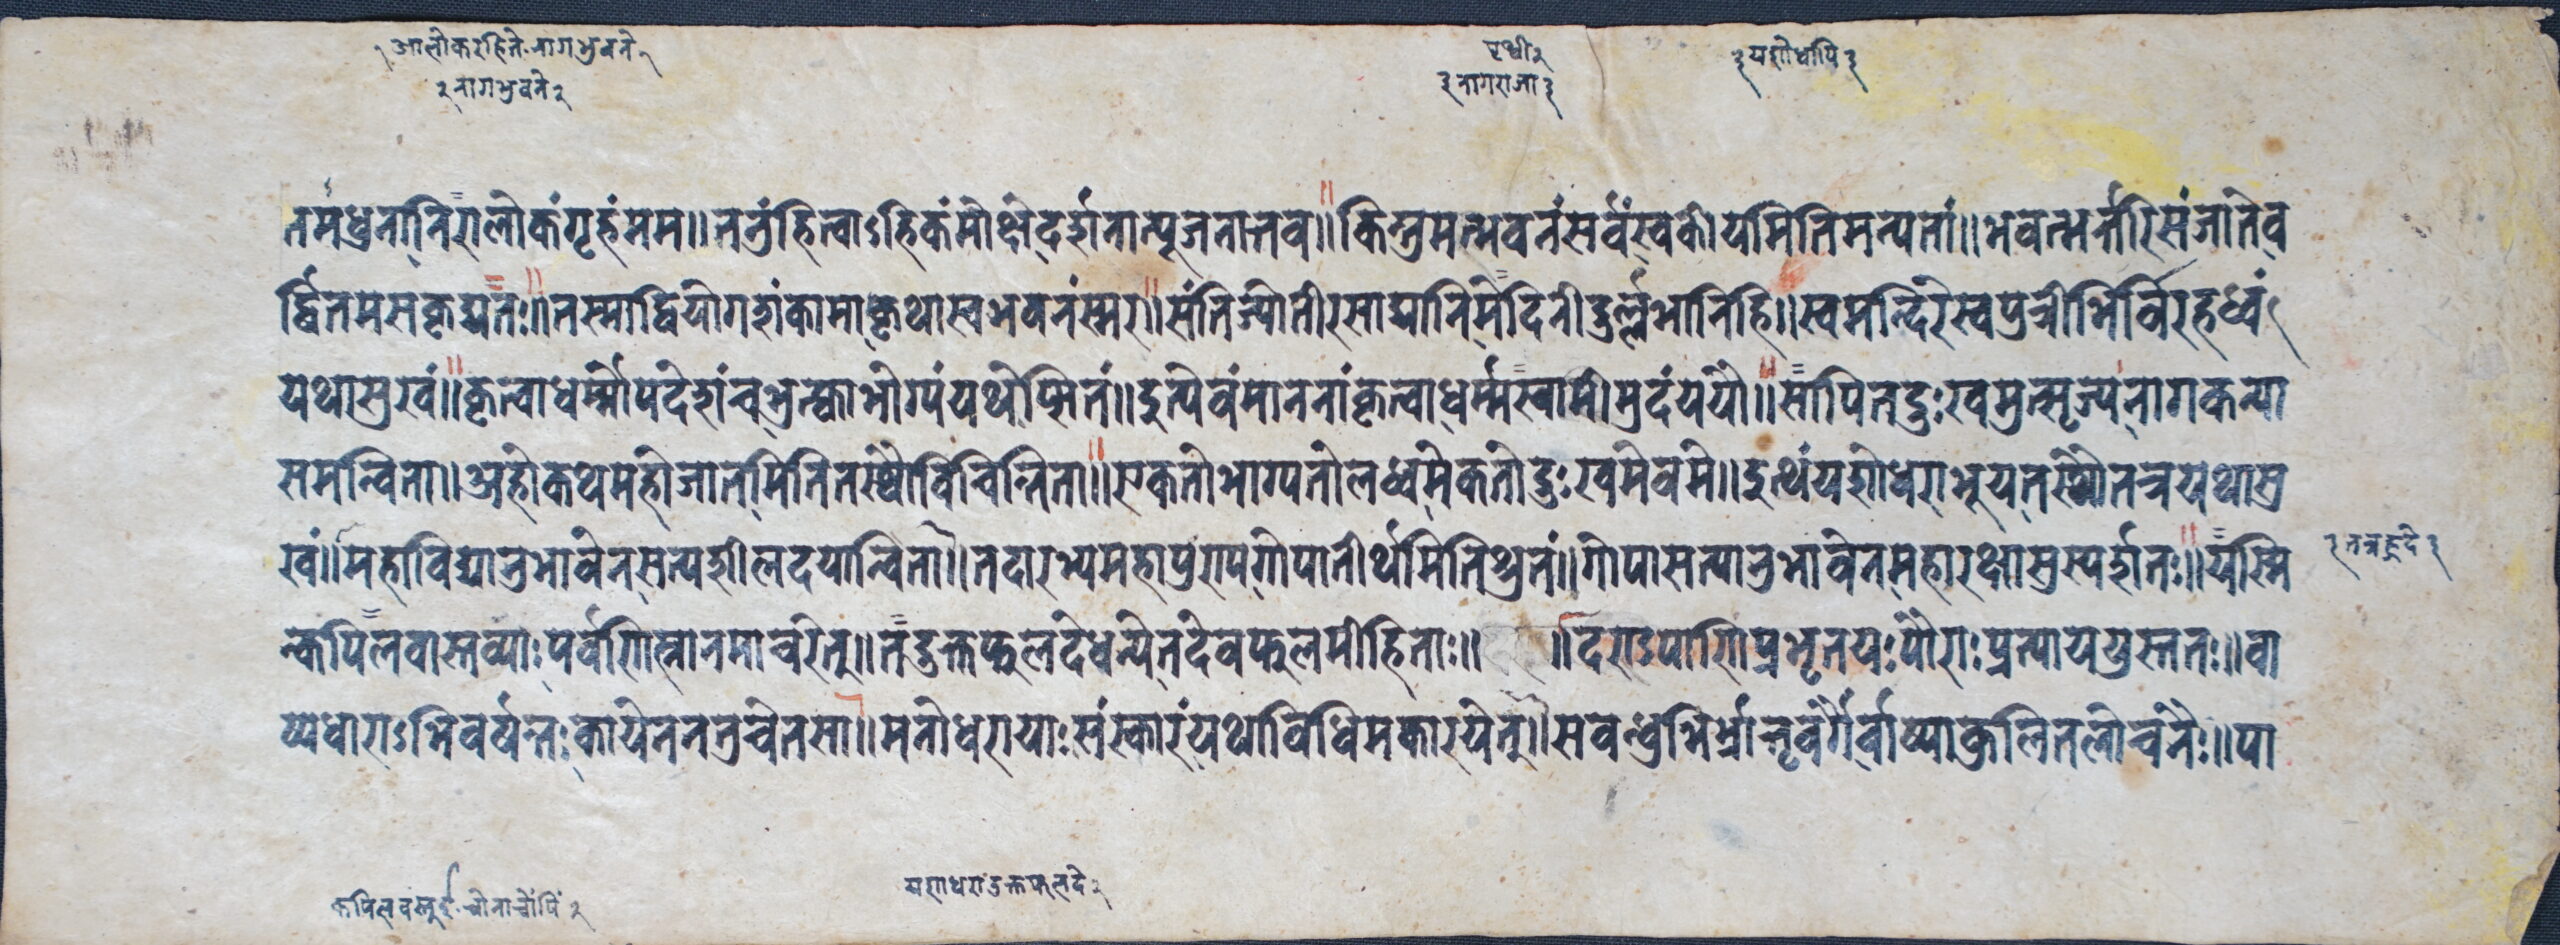 १ आलोकरहिते नागभुवने १
२ नागभुवने २
पृथ्वी २
३ नागराजा ३
३ यशोधापि ३
तमधुनानिरालोकंगृहंमम॥ननुंहित्वाऽहिकंमोक्षंदर्शनात्पूजनात्तव॥किन्तुमत्भवनंसर्वंस्वकीयमितिमन्यतां॥भवत्भर्त्तरिसंजातेव
र्द्धितमसकृद्यतः॥तस्माद्वियोगशंकामाकृथास्वभवनंस्मर॥संतिज्योतीरसाद्यानिमेदिनीदुर्ल्लभानिहि॥स्वमन्दिरेस्वपुत्रीभिर्विरहध्वं
यथासुखं॥कृत्वाधर्म्मोपदेशंचभुत्क्वाभोग्यंयथेप्सितं॥इत्येवंमाननांकृत्वाधर्म्मस्वामीमुदंययौ॥सापितद्दुःखमुत्सृज्यनागकन्या
समन्विता॥अहोकथमहोजातमितितस्थौविचिन्तिता॥एकतोभाग्यतोलध्वमेकतोदुःखमेवमे॥इत्थंयशोधराभूयतस्थौतत्रयथासु
खं॥महाविद्यानुभावेनसत्यशीलदयान्विता॥तदारभ्यमहापुरापगोपातीर्थमितिश्रुतं॥गोपासत्यानुभावेनमहारक्षासुस्पर्शनः॥यस्मि
२ तत्रह्रदे २
न्कपिलवास्तव्याः पर्वणिस्नानमाचरेत्॥तदुक्तफलदेधन्येतदेवफलमीहिताः॥ ॥दराऽपाणिप्रभृतयःपौराःप्रत्याययुस्ततः॥वा
ष्पधाराऽभिवर्षन्तःकायेनतनुचेतसा॥मनोधरायाःसंस्कारंयथाविधिमकारयेत्॥सबन्धुभिर्भ्रातृवर्गैर्वाष्पाकुलितलोचनैः॥पा
यशोधराउक्तफलदे २